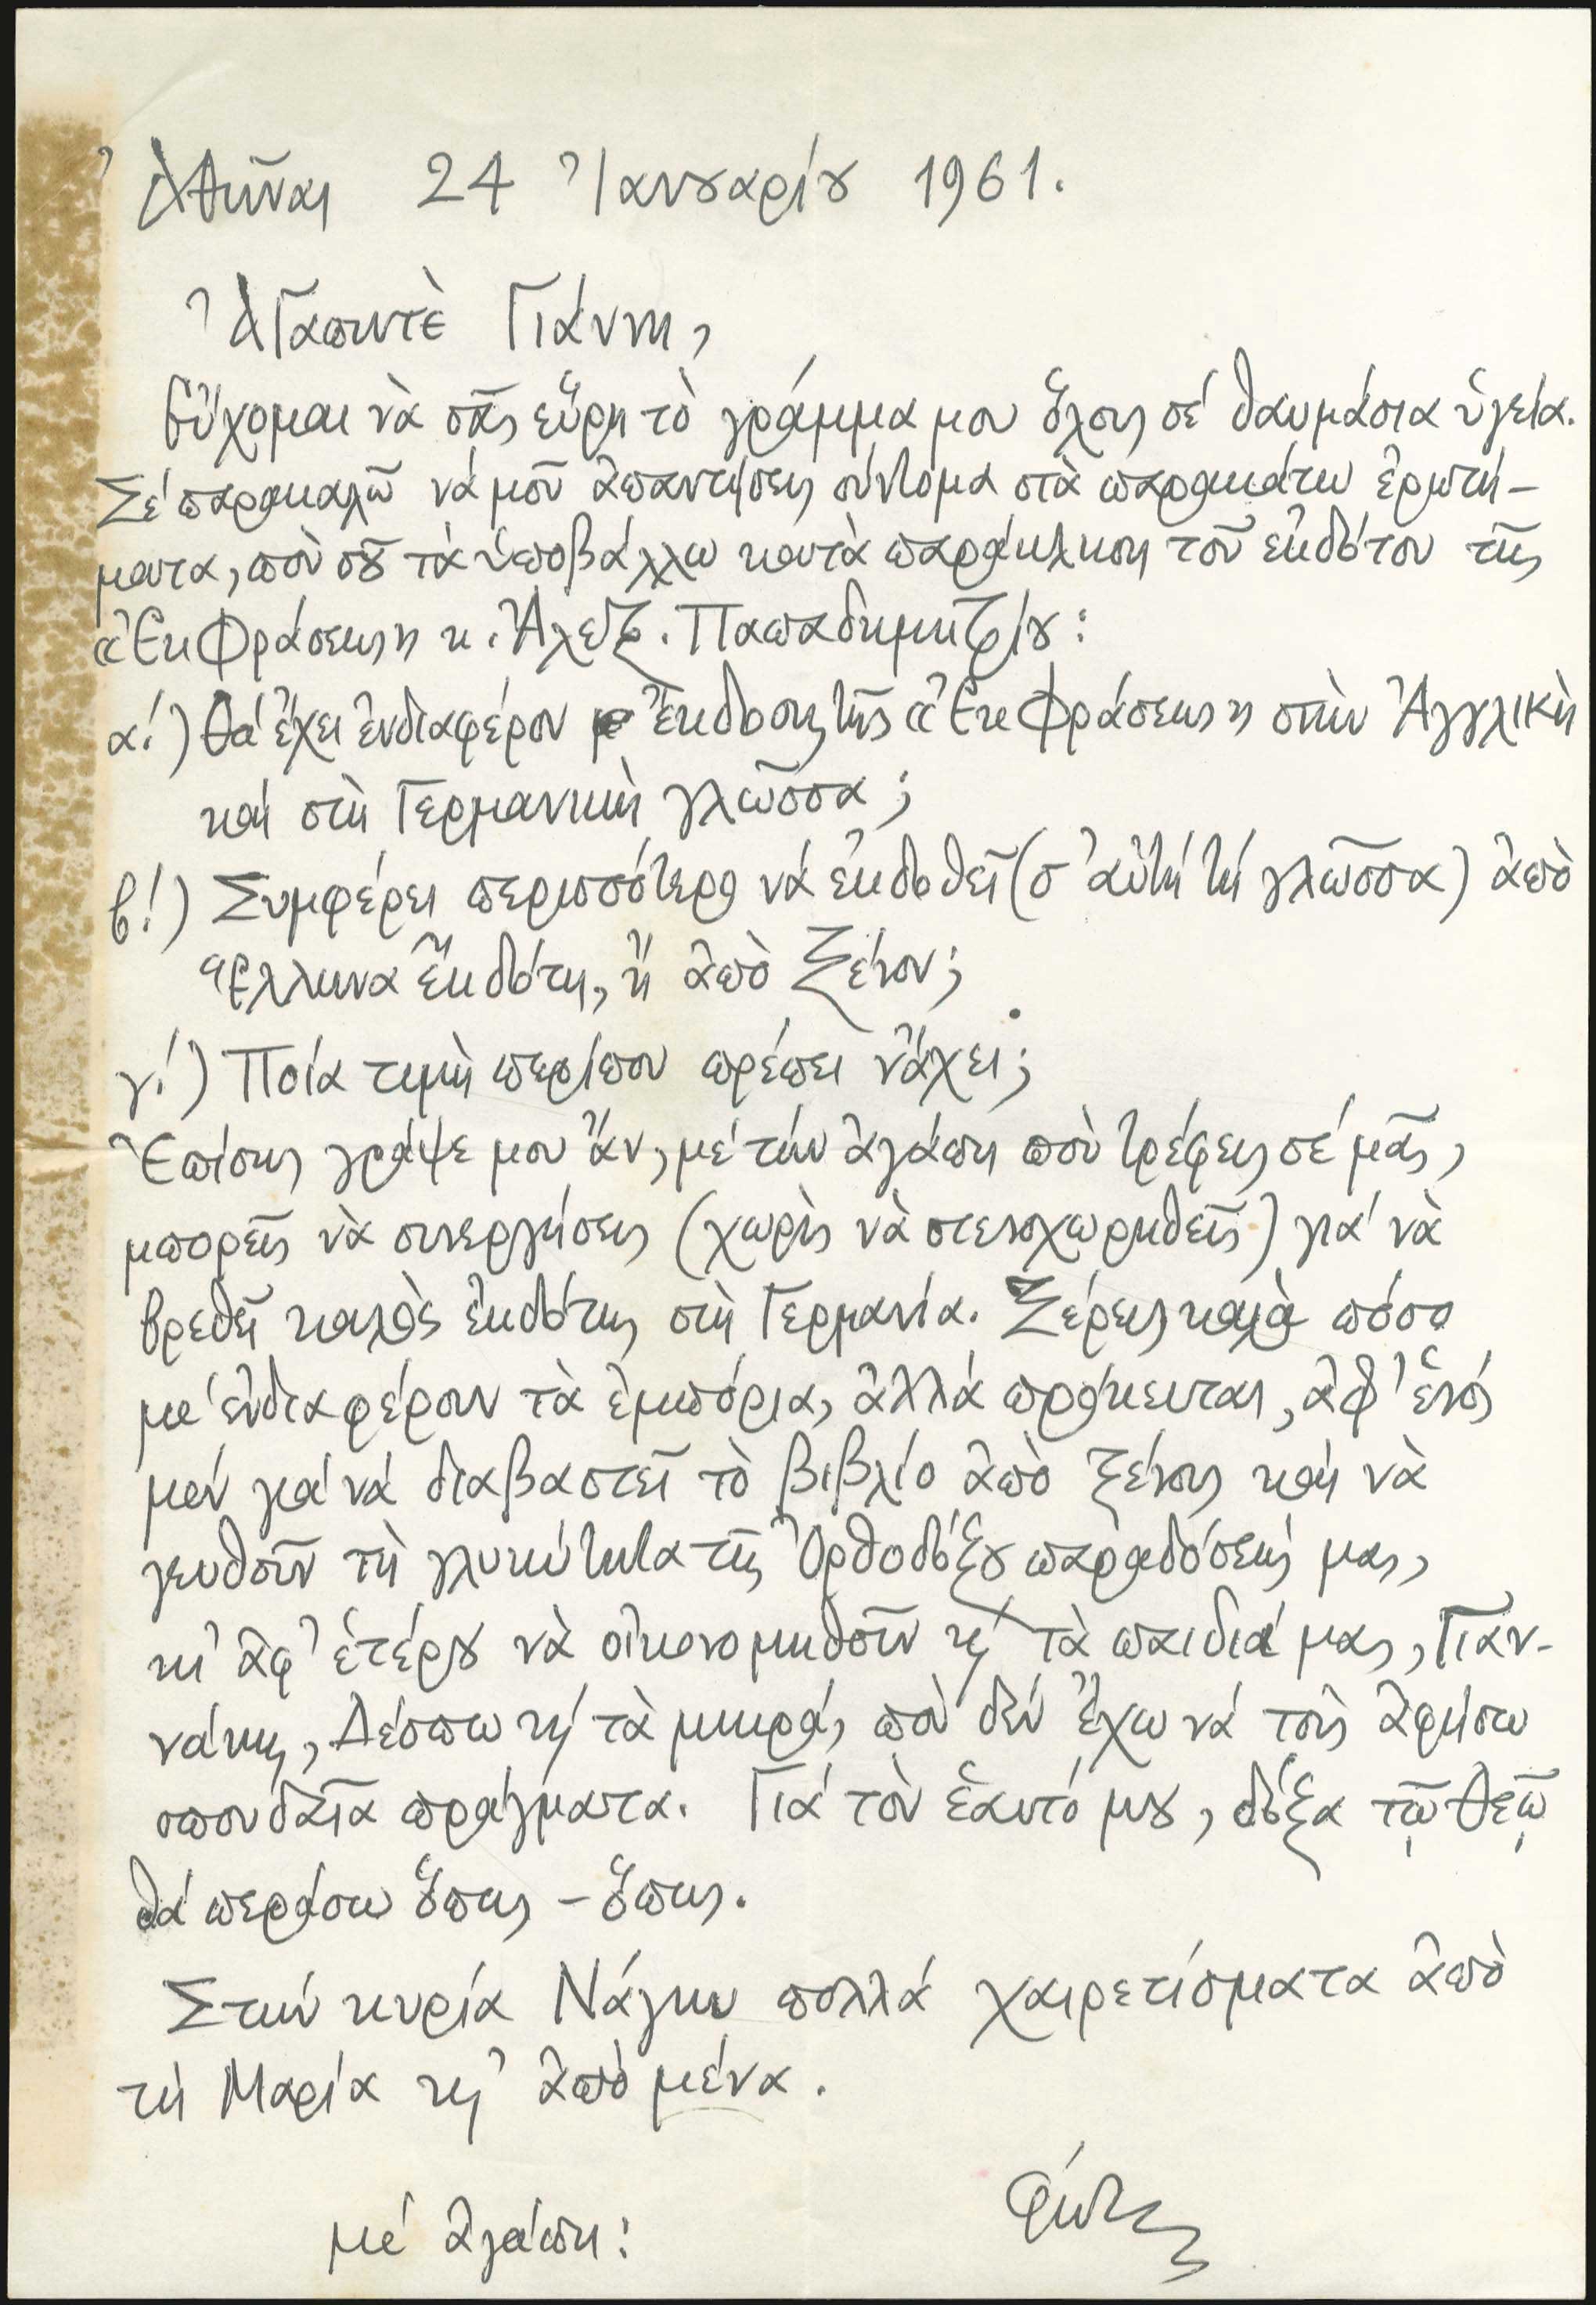 Ἀθῆναι 24 Ἰανουαρίου 1961.
Ἀγαπητὲ Γιάννη,
Εὔχομαι νὰ σᾶς εὕρη τὸ γράμμα μου ὅλους σέ θαυμάσια ὑγεία.
Σέ παρακαλῶ νά μοῦ ἀπαντήσεις σύντομα στὰ παρακάτω ἐρωτή-
ματα, ποὺ σοῦ τὰ ὑποβάλλω κατὰ παράκληση τοῦ ἐκδότου τῆς
«Ἐκφράσεως» κ. Ἀλεξ. Παπαδημητρίου:
α!) Θά ἔχει ἐνδιαφέρον ἔκδοσις τῆς «Ἐκφράσεως» στὴν Ἀγγλικὴ
καί στὴ Γερμανικὴ γλῶσσα;
β!) Συμφέρει περισσότερο νά ἐκδοθεῖ (σ' αὐτή τή γλῶσσα) ἀπὸ
Ἕλληνα ἐκδότη, ἢ ἀπὸ ξένον;
γ!) Ποία τιμὴ περίπου πρέπει νἄχει;
Ἐπίσης γράψε μου ἄν, μέ τήν ἀγάπη ποὺ τρέφεις σέ μᾶς,
μπορεῖς νὰ συνεργήσεις (χωρὶς νὰ στενοχωρηθεῖς) γιά νὰ
βρεθεῖ καλὸς ἐκδότης στὴ Γερμανία. Ξέρεις καλὰ πόσο
μέ ἐνδιαφέρουν τὰ ἐμπόρια, ἀλλά πρόκειται, ἀφ' ἑνός
μέν γιά νά διαβαστεῖ τὸ βιβλίο ἀπὸ ξένους καί νὰ
γευθοῦν τὴ γλυκύτητα τῆς Ὀρθοδόξου παραδόσεώς μας,
κι' ἀφ' ἑτέρου νὰ οἰκονομηθοῦν κ' τὰ παιδιά μας, Γιαν-
νάκης, Δέσπω κ' τὰ μικρά, ποὺ δέν ἔχω νά τοὺς ἀφήσω
σπουδαῖα πράγματα. Γιά τὸν ἑαυτό μου, δόξα τῷ Θεῷ
θά περάσω ὅπως - ὅπως.
Στήν κυρία Νάγκυ πολλά χαιρετίσματα ἀπὸ
τὴ Μαρία κι' ἀπὸ μένα.
μέ ἀγάπη:
Φώτης